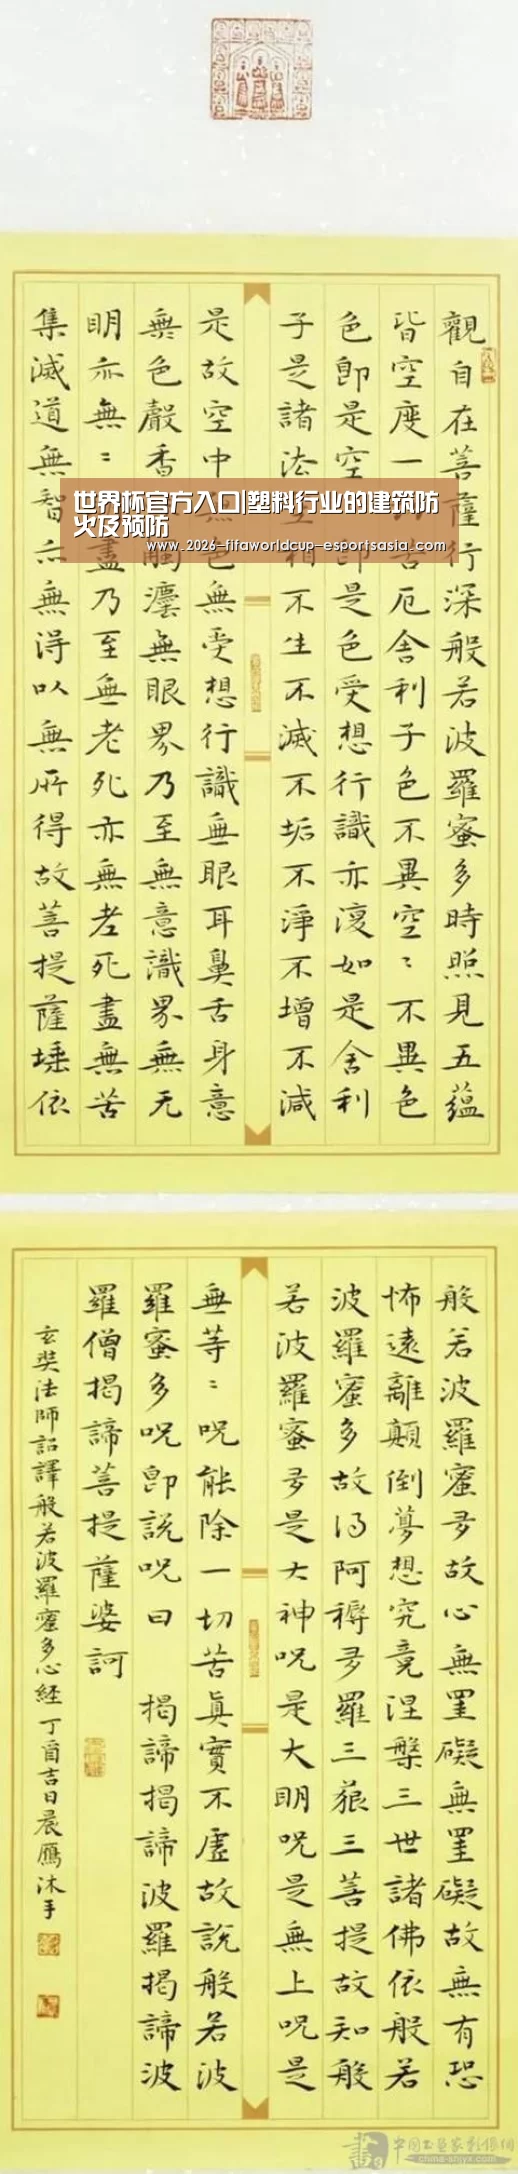 觀自在菩薩行深般若波羅蜜多時照見五蘊
皆空度一苦厄舍利子色不異空〻不異色
色即是空即是色受想行識亦復如是舍利
子是諸法相不生不滅不垢不淨不增不減
是故空中無色無受想行識無眼耳鼻舌身意
無色聲香觸塵無眼界乃至無意識界無无
明亦無〻盡乃至無老死亦無老死盡無苦
集滅道無智亦無得以無所得故菩提薩埵依
世界杯官方入口|塑料行业的建筑防
火及预防
www.2026-fifaworldcup-esportsasia.com
般若波羅蜜多故心無罣礙無罣礙故無有恐
怖遠離顛倒夢想究竟涅槃三世諸佛依般若
波羅蜜多故得阿耨多羅三藐三菩提故知般
若波羅蜜多是大神咒是大明咒是無上咒是
無等〻咒能除一切苦真實不虛故說般若波
羅蜜多咒即說咒曰 揭諦揭諦波羅揭諦波
羅僧揭諦菩提薩婆訶
玄奘法師詔譯般若波羅蜜多心經 丁酉吉日晨鴈沐手
中国书画家影像网
china-shjyx.com